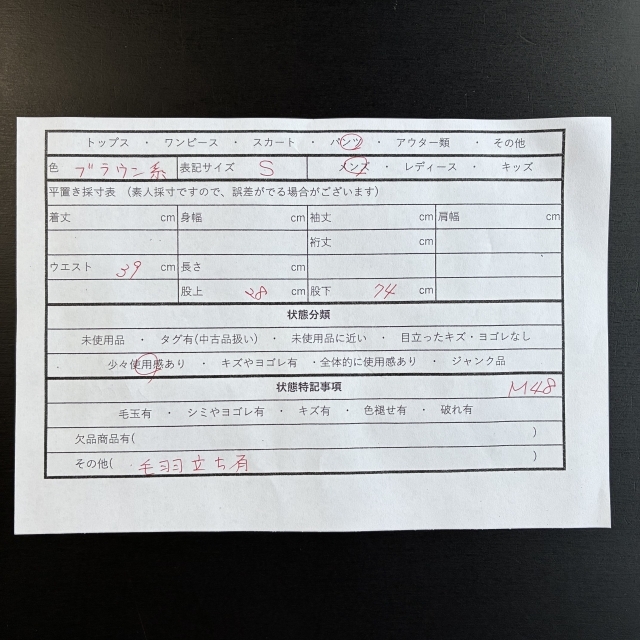 トップス ・ ワンピース ・ スカート ・ パンツ ・ アウター類 ・ その他
色 ブラウン系 表記サイズ S メンズ ・ レディース ・ キッズ
平置き採寸表 (素人採寸ですので、誤差がでる場合がございます)
着丈 cm 身幅 cm 袖丈 cm 肩幅 cm
裄丈 cm
ウエスト 39 cm 長さ cm
股上 28 cm 股下 74 cm
状態分類
未使用品 ・ タグ有(中古品扱い) ・ 未使用品に近い ・ 目立ったキズ・ヨゴレなし
少々使用感あり ・ キズやヨゴレ有 ・全体的に使用感あり ・ ジャンク品
状態特記事項 M48
毛玉有 ・ シミやヨゴレ有 ・ キズ有 ・ 色褪せ有 ・ 破れ有
欠品商品有( )
その他( 毛羽立ち有 )